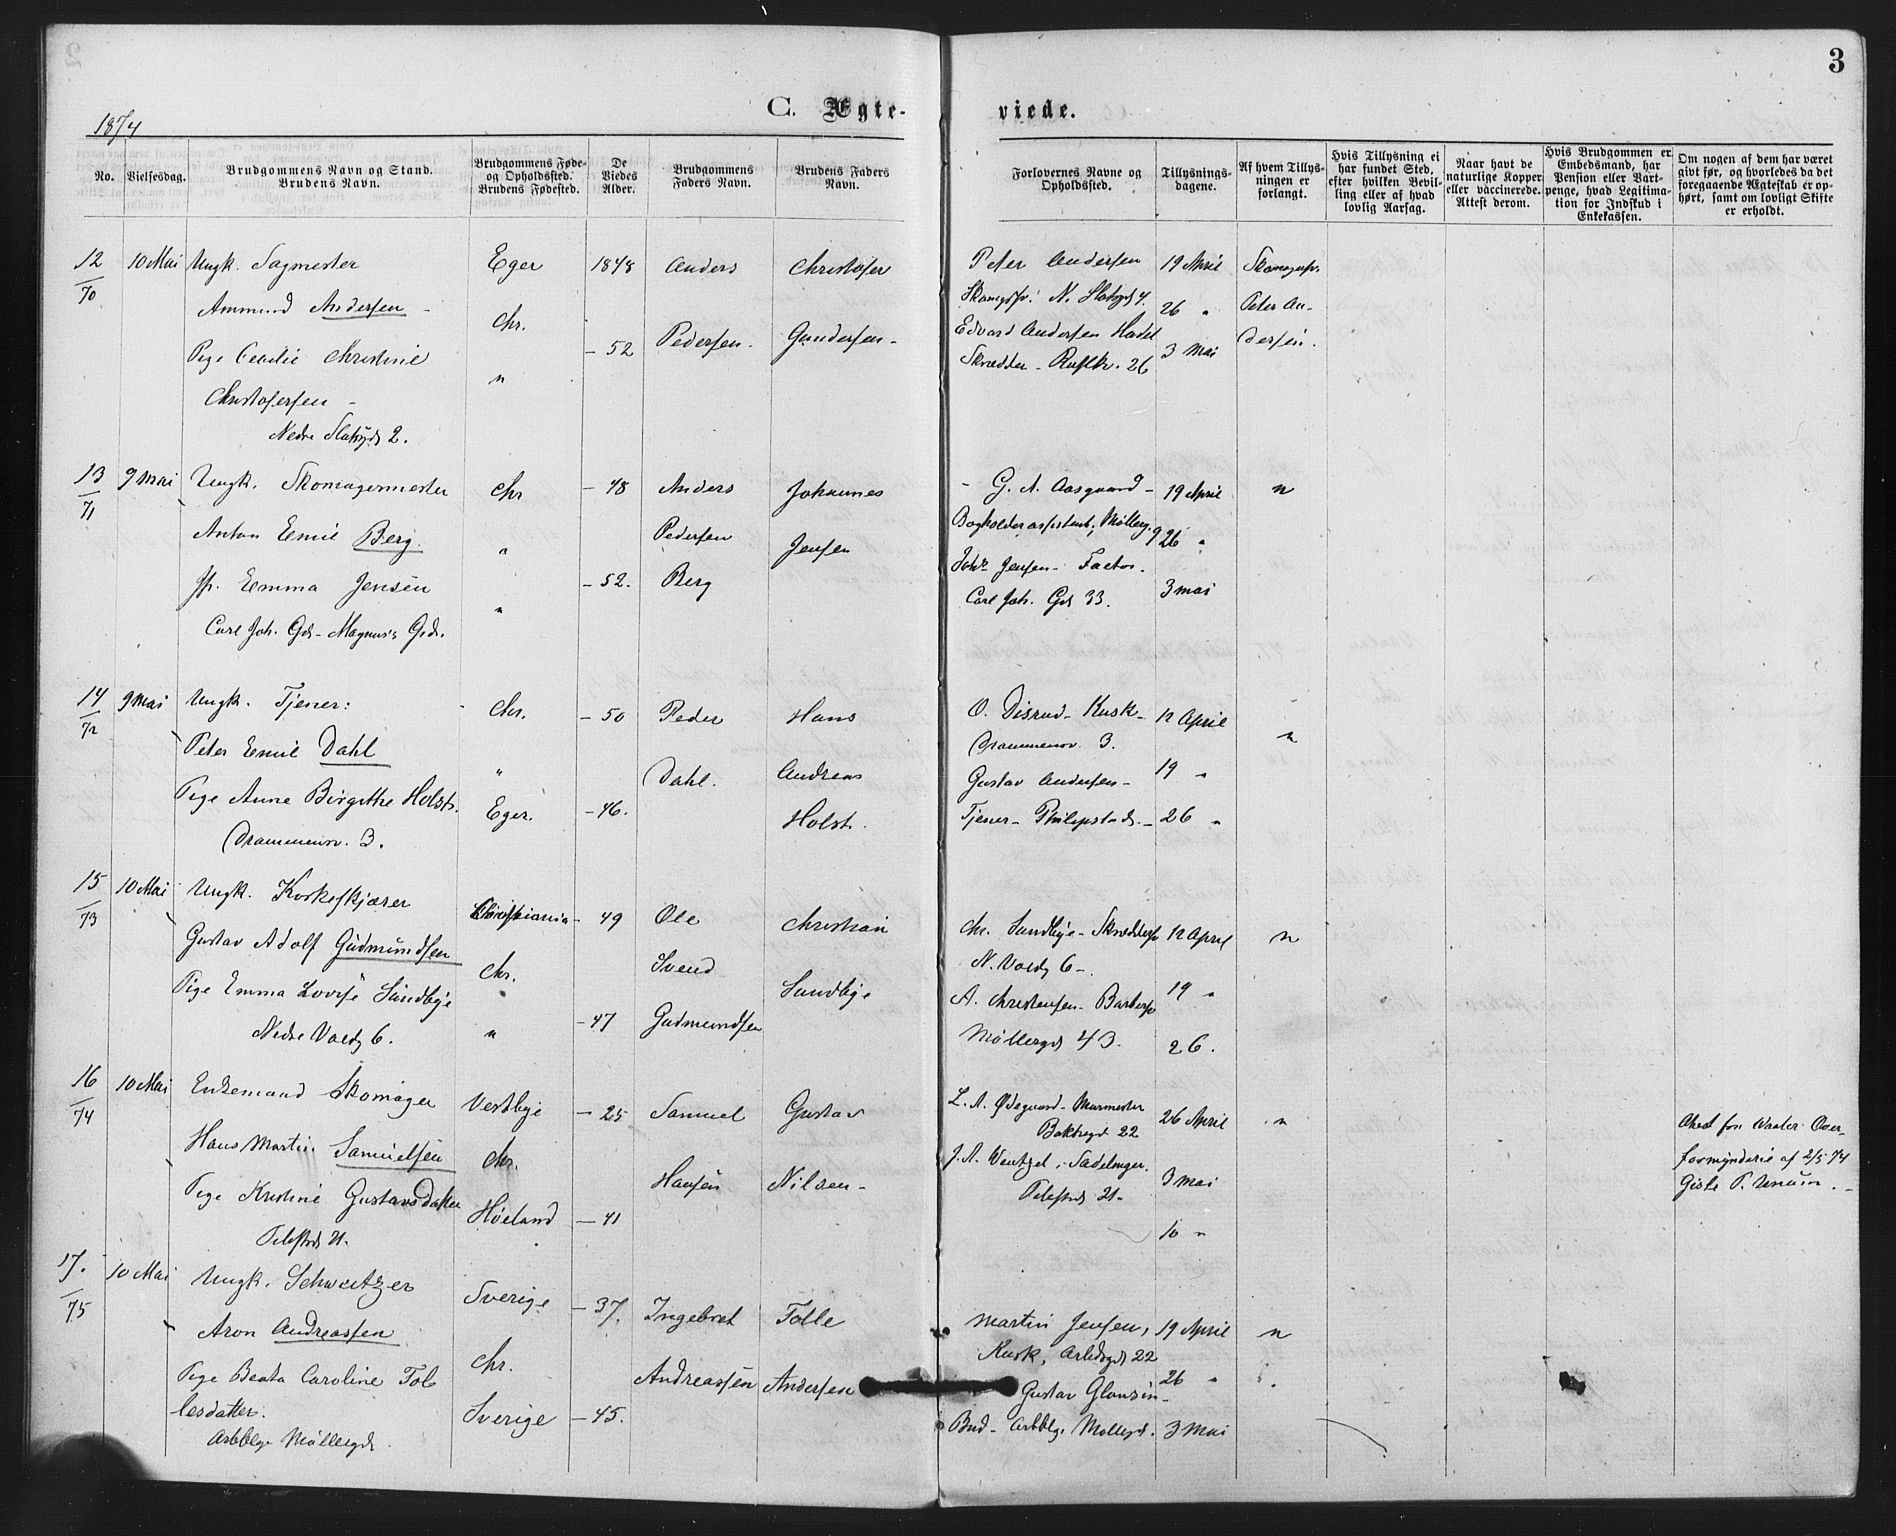 3
C. Ægteviede.
1874
No.
Vielsesdag.
Brudgommens Navn og Stand.
Brudens Navn.
Brudgommens Føde-
og Opholdssted.
Brudens Fødested.
De
Viedes
Alder.
Brudgommens
Faders Navn.
Brudens Faders
Navn.
Forlovernes Navne og
Opholdssted.
Tillysnings-
dagene.
Af hvem Tillys-
ningen er
forlangt.
Hvis Tillysning ei
har fundet Sted,
efter hvilken Bevil-
ling eller af hvad
lovlig Aarsag.
Naar havt de
naturlige Kopper
eller vaccinerede.
Attest derom.
Hvis Brudgommen er
Embedsmand, har
Pension eller Vart-
penge, hvad Legitima-
tion for Indskud i
Enkekassen.
Om nogen af dem har været
givt før, og hvorledes da det
foregaaende Ægteskab er op-
hørt, samt om lovligt Skifte
er erholdt.
12
70
10 Mai
Ungk. Sagmester
Ammund Andersen -
Pige Cecilie Christine
Christofersen -
Nedre Slotsgd 2.
Eger
Chr.
"
1848
- 52
Anders
Pedersen.
Christofer
Gundersen -
Peter Andersen
N. Slotsgd 4.
Edvard Andersen
Skrædder - 26
19 April
26 "
3 Mai
Peter An-
dersen.
13
71
9 Mai
Ungk. Skomagermester
Anton Emil Berg.
Jfr. Emma Jensen
Carl Joh. Gd - Magnus's Grd.
Chr
"
"
- 48
- 52.
Anders
Pedersen
Berg
Johannes
Jensen
- G. A. Aasgaard -
Bogholderassistent, Møllerg.
Johs Jensen - Factor.
Carl Joh. Gd 33.
19 April
26 "
3 Mai
"
14
72
9 Mai
Ungk. Tjener:
Peter Emil Dahl
Pige Anne Birgithe Holst.
Drammensv. 3.
Chr.
"
Eger.
- 50
- 46.
Peder
Dahl.
Hans
Andreas
Holst.
O. Disrud - Kusk -
Drammensv. 3.
Gustav Andersen -
Tjener - Philipstad. -
12 April
19 "
26 "
"
15
73
10 Mai
Ungk. Korkeskjærer
Gustav Adolf Gudmundsen
Pige Emma Lovise Sundbye
Nedre Voldg 6.
Christiania
Chr.
"
- 49
- 47
Ole
Svend
Gudmundsen
Christian
Sundbye
Chr. Sundbye - Skræddersv
N. Voldg 6 -
A. Christensen - Barbersv
Møllergd 43.
12 April
19 "
26.
"
16
74
10 Mai
Enkemand Skomager
Hans Martin Samuelsen
Pige Kristine Gustavsdatter
Pilestræd 21.
Vestbye
Chr.
Høeland
- 25
- 41
Samuel
Hansen
Gustav
Nilsen -
L. A. Ødegaard - Murmester
22
J. A. Wentzel, Sadelmager.
Pilestræd 21 -
26 April
3 Mai
10 "
"
Attest fra Waaler Over-
formynderie af 2/5 74
17.
75
10 Mai
Ungk. Schweitzer
Aron Andreassen
Pige Beata Caroline Tol-
lesdatter.
Møllergd.
Sverige
Chr.
Sverige
- 37.
- 45.
Ingebret
Andreassen
Tolle
Andersen
Martin Jensen,
Kusk, 22
Gustav
Bud - Møllergd.
19 April
26 "
3 Mai
"